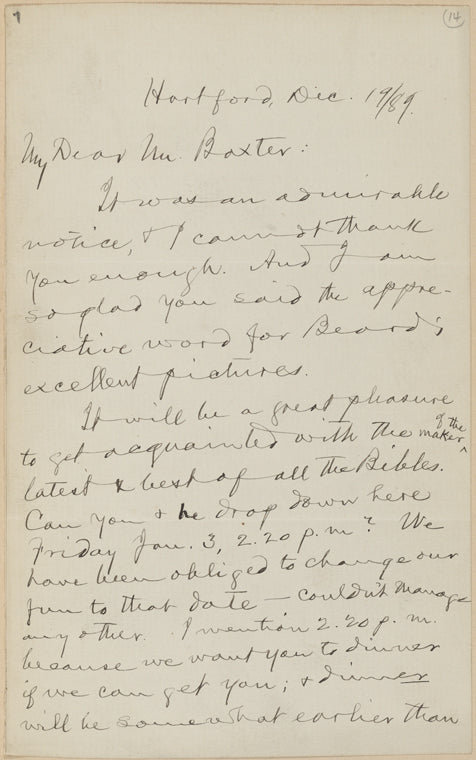 14
Hartford, Dec. 19/89.
My Dear Mr. Baxter:
It was an admirable
notice, & I cannot thank
you enough. And I am
so glad you said the appre-
ciative word for Beard's
excellent pictures.
It will be a great pleasure
to get acquainted with the maker of the
latest & best of all the Bibles.
Can you & he drop down here
Friday Jan. 3, 2.20 p.m? We
have been obliged to change our
fun to that date — couldn't manage
any other. I mention 2.20 p.m.
because we want you to dinner
if we can get you; & dinner
will be somewhat earlier than